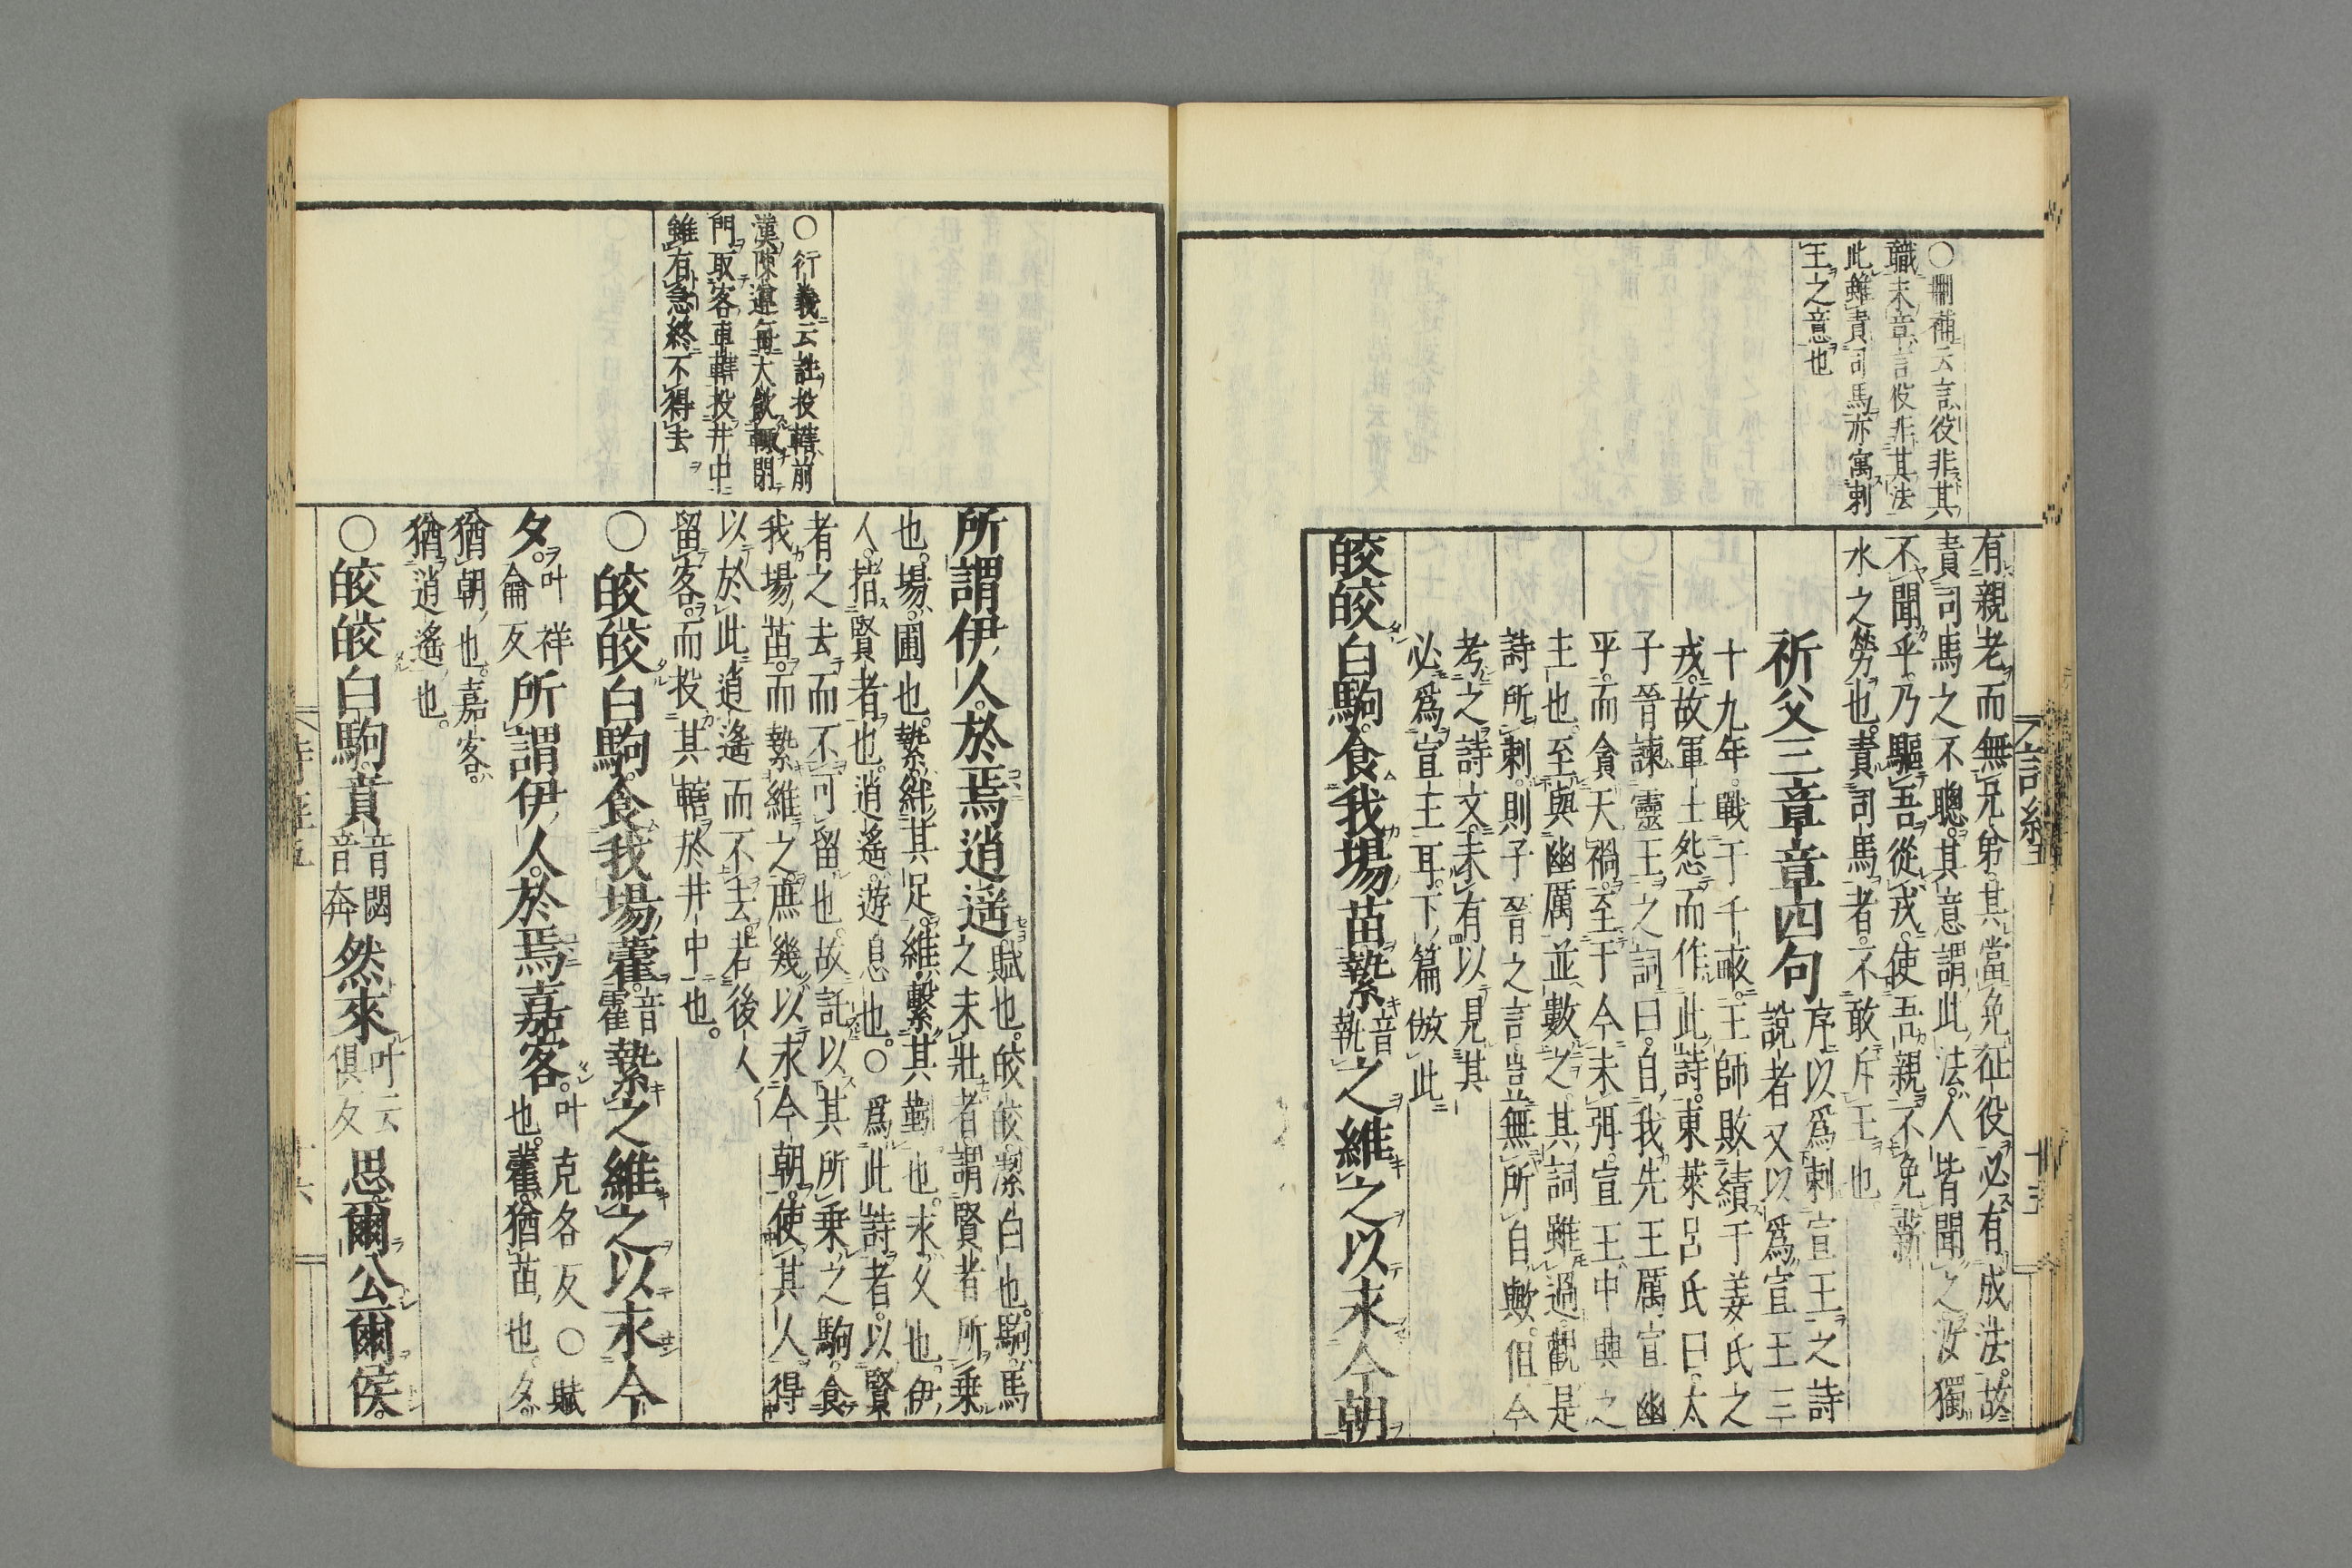 ○刪補云言役非其
職末章言役非其法
此雖責司馬亦寓刺
王之意也
有親老而無兄弟其當免征役必有成法故
責司馬之不聰其意謂此法人皆聞之汝獨
不聞乎乃驅吾從戎使吾親不免薪
水之勞也責司馬者不敢斥王也
祈父三章章四句
序以爲刺宣王之詩
說者又以爲宣王三
十九年戰于千畝王師敗績于姜氏之
戎故軍士怨而作此詩東萊呂氏曰太
子晉諫靈王之詞曰自我先王厲宣幽
平而貪天禍至于今未弭宣王中興之
主也至與幽厲並數之其詞雖過觀是
詩所刺則子晉之言豈無所自歟但今
考之詩文未有以見其
必爲宣王耳下篇倣此
皎皎白駒食我場苗縶音
執之維之以永今朝
○行義云註投轄前
漢陳遵每大飲輒閉
門取客車轄投井中
雖有急終不得去
所謂伊人於焉逍遙賦也皎皎潔白也駒馬
之未壯者謂賢者所乗
也場圃也縶絆其足維繫其靷也永久也伊
人指賢者也逍遙遊息也○爲此詩者以賢
者之去而不可留也故託以其所乗之駒食
我場苗而縶維之庶幾以永今朝使其人得
以於此逍遙而不去若後人
留客而投其轄於井中也
○皎皎白駒食我場藿音
霍縶之維之以永今
夕叶祥
龠反所謂伊人於焉嘉客叶克各反○賦
也藿猶苗也夕
猶朝也嘉客
猶逍遙也
○皎皎白駒賁音閟
音奔然來叶云
俱反思爾公爾侯